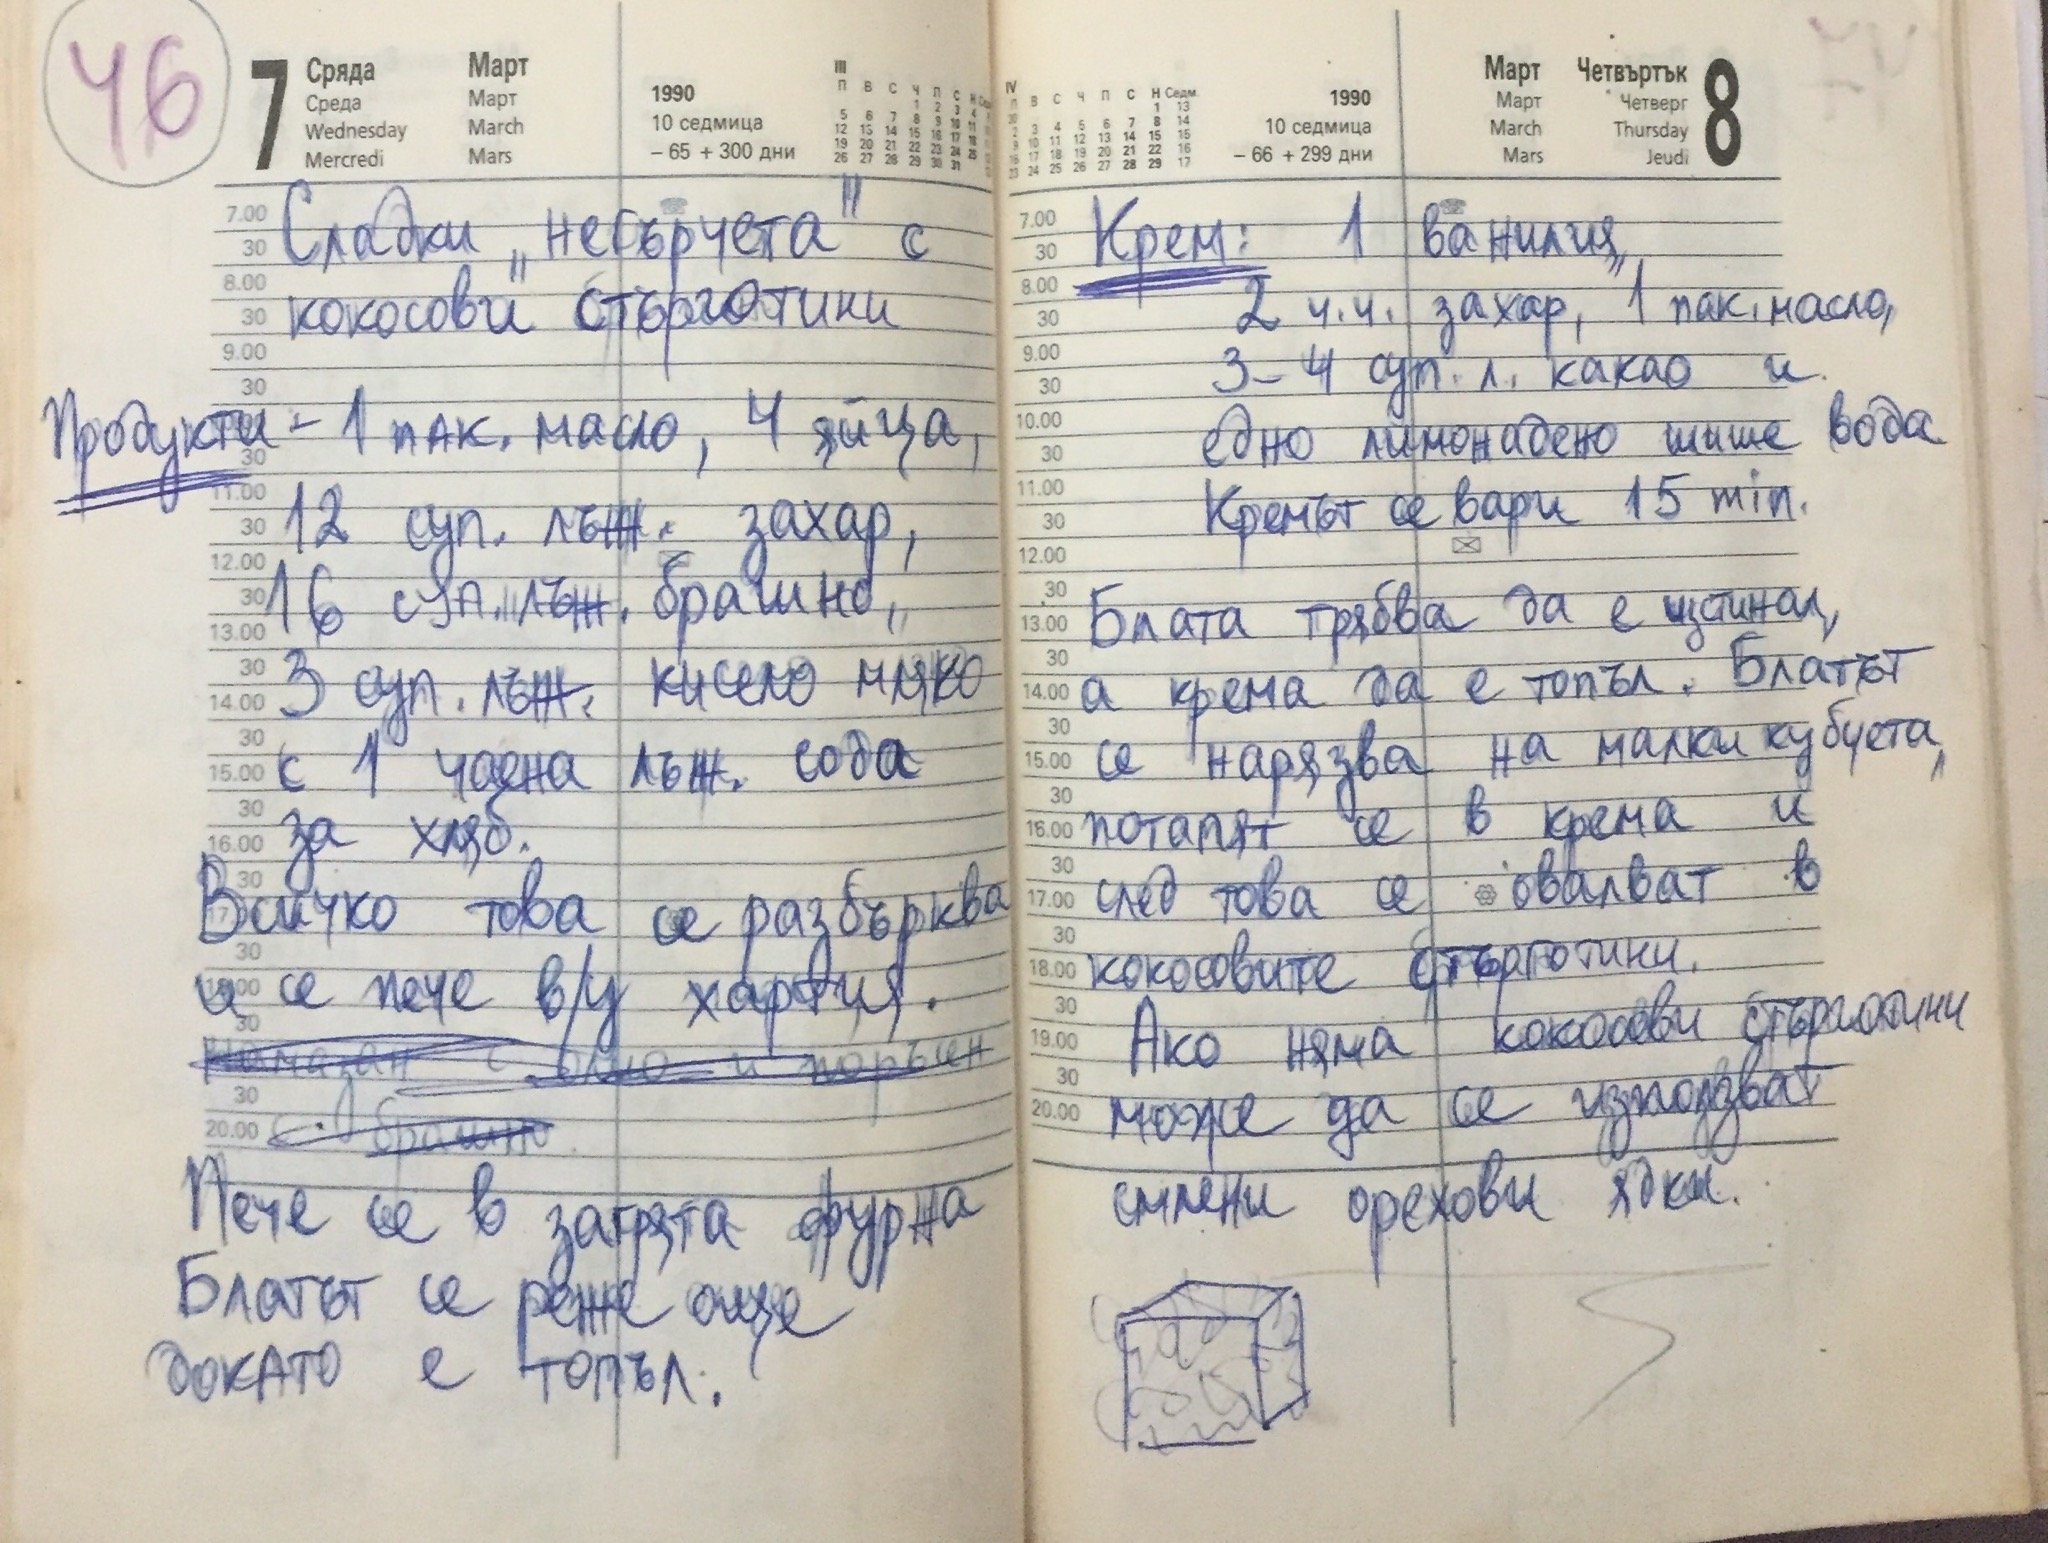 46
7 Сряда Март
Среда Март 1990
Wednesday March 10 седмица
Mercredi Mars – 65 + 300 дни
Сладки „небърчета" с
кокосови стърготини
Продукти - 1 пак. масло, 4 яйца,
12 суп. лъж. захар,
16 суп. лъж. брашно,
3 суп. лъж. кисело мляко
с 1 чаена лъж. сода
за хляб.
Всичко това се разбърква
и се пече в/у хартия.
намазан с олио и поръсен
с брашно.
Пече се в загрята фурна
Блатът се реже още
докато е топъл.
Март Четвъртък 8
1990 Март Четверг
10 седмица March Thursday
– 66 + 299 дни Mars Jeudi
Крем: 1 ванилия,
2 ч.ч. захар, 1 пак. масло,
3-4 суп. л. какао и
едно лимонадено шише вода
Кремът се вари 15 min.
Блата трябва да е изстинал,
а крема да е топъл. Блатът
се нарязва на малки кубчета,
потапят се в крема и
след това се овалват в
кокосовите стърготини.
Ако няма кокосови стърготини
може да се използват
смлени орехови ядки.